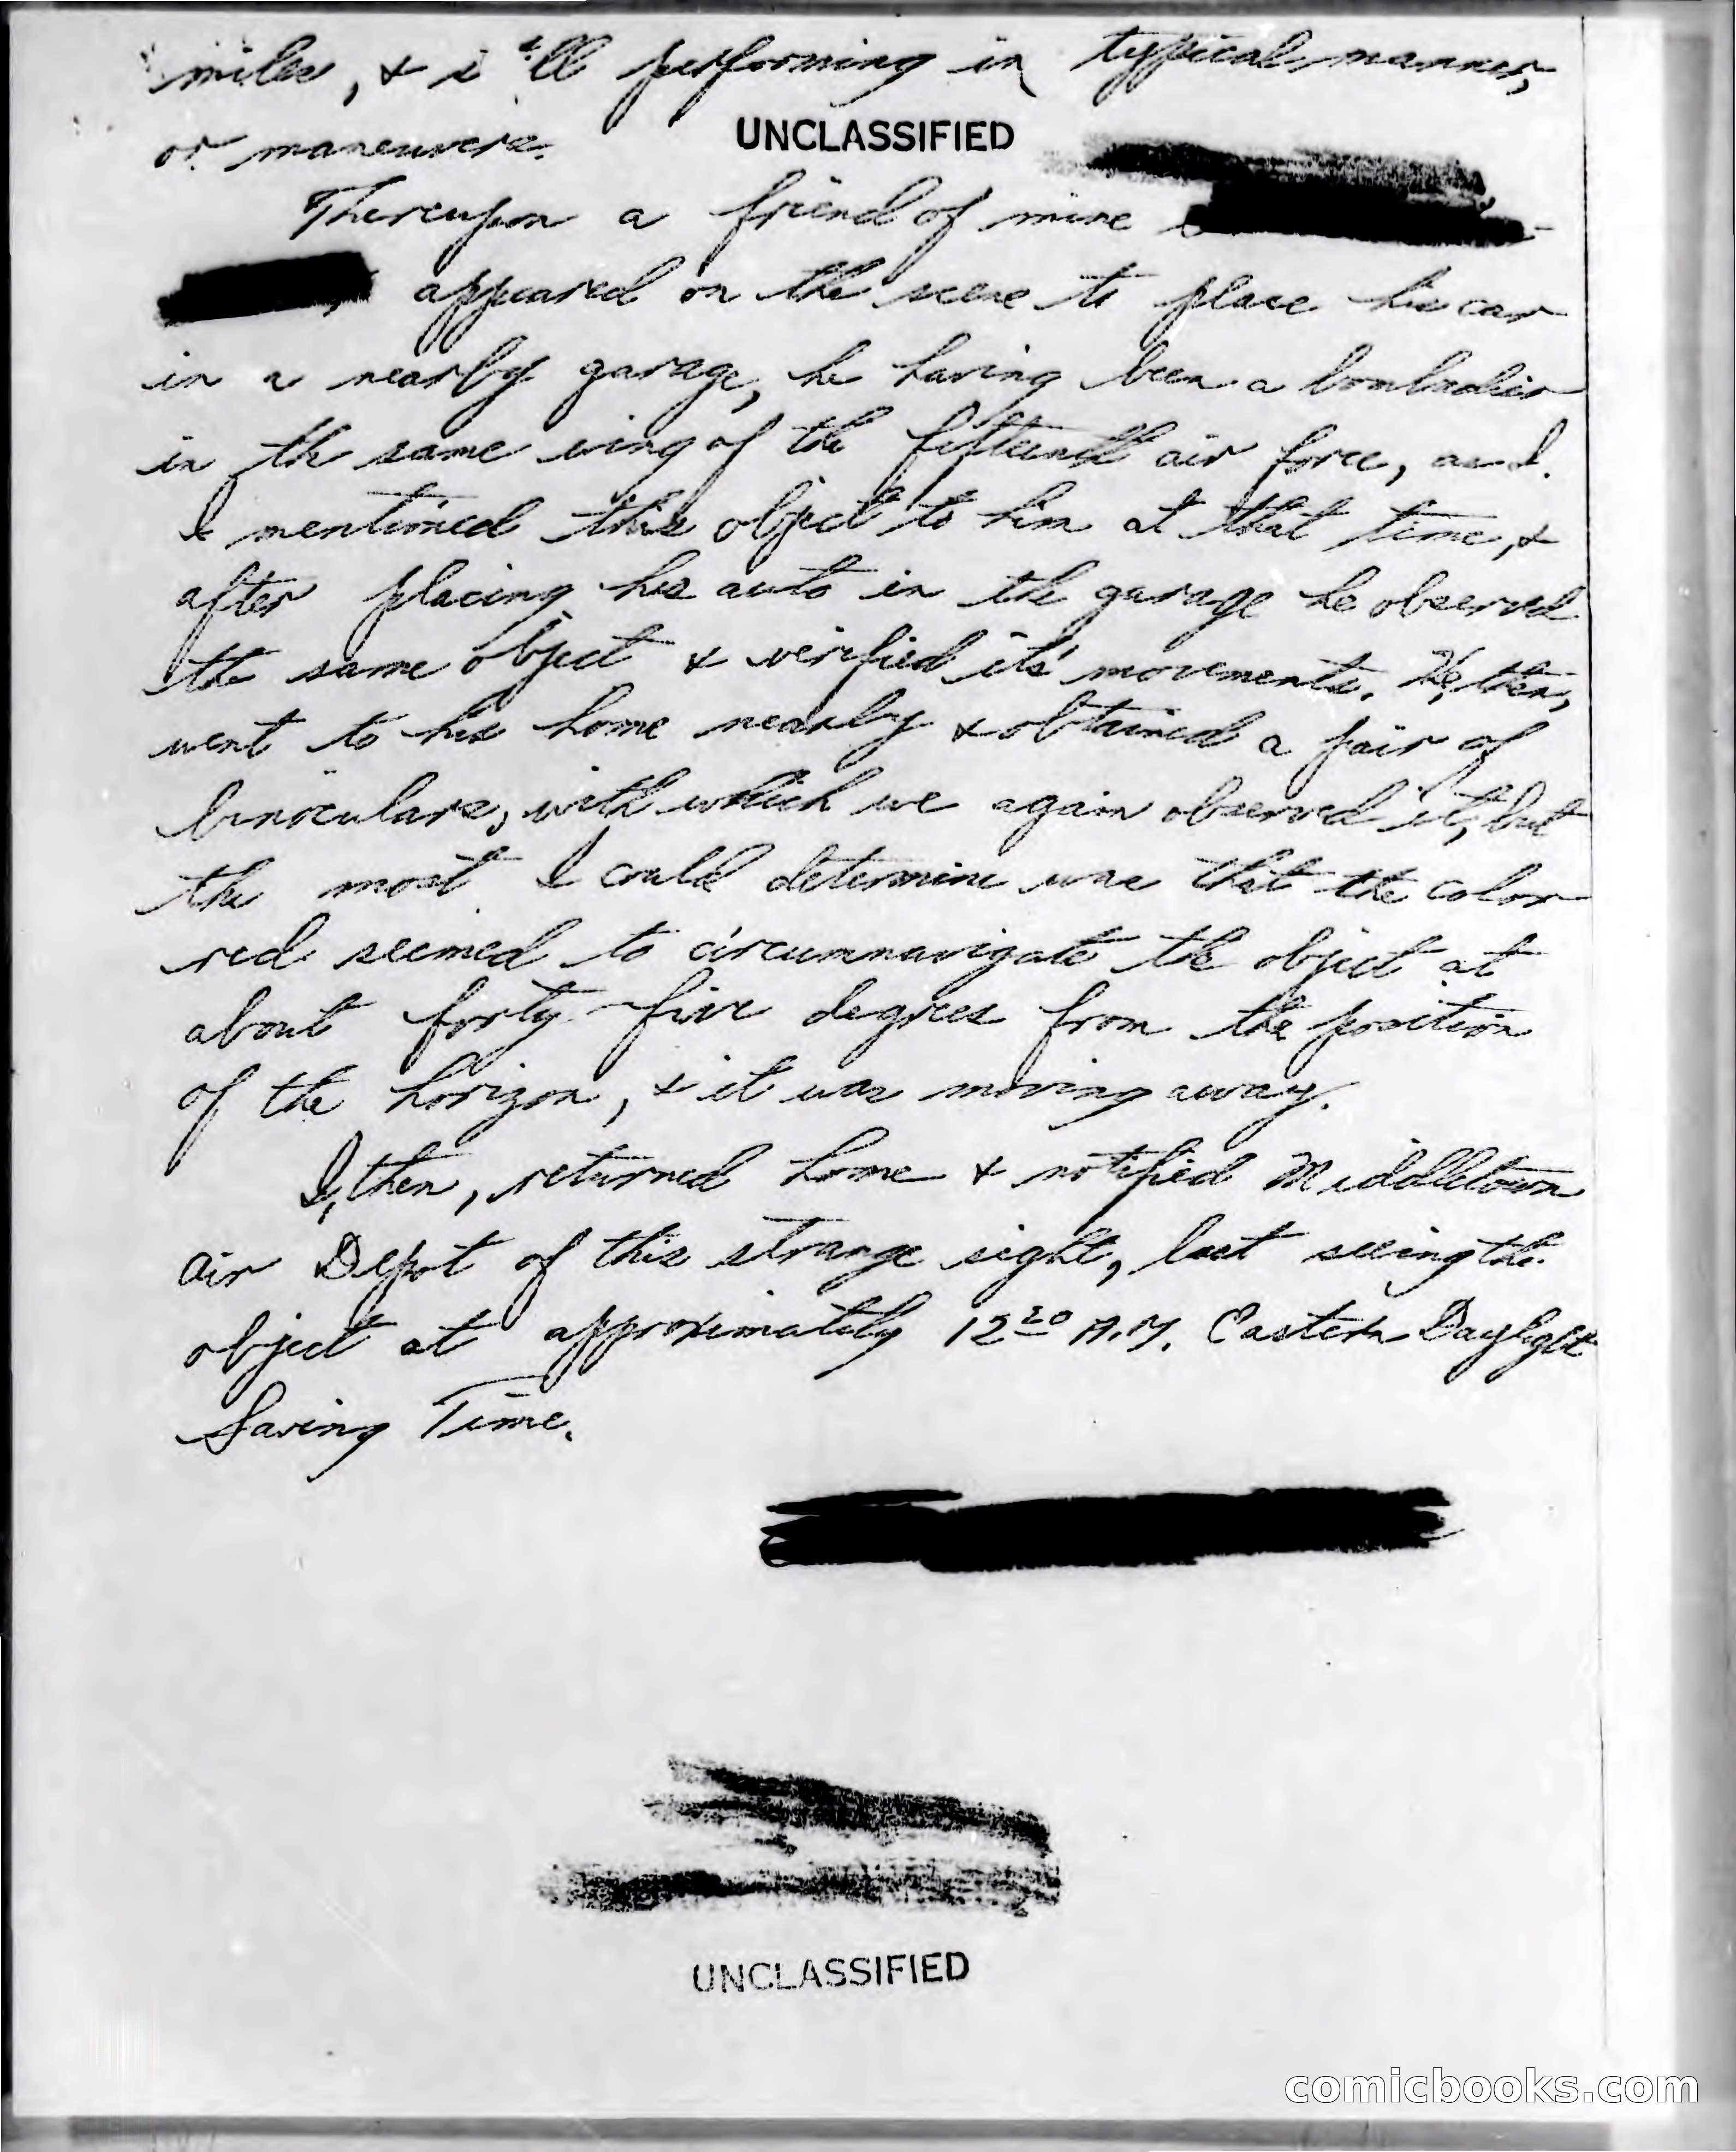 miles, & still performing in typical manner,
or maneuvers.
UNCLASSIFIED
Thereupon a friend of mine
appeared on the scene to place his car
in a nearby garage, he having been a bombadier
in the same wing of the fifteenth air force, as I.
I mentioned this object to him at that time, &
after placing his auto in the garage he observed
the same object & verified its' movements. He, then,
went to his home nearby & obtained a pair of
binoculars, with which we again observed it, but
the most I could determine was that the color
red seemed to circumnavigate the object at
about forty-five degrees from the position
of the horizon, & it was moving away.
I, then, returned home & notified Middletown
Air Depot of this strange sight, last seeing the
object at approximately 12 20 A.M. Eastern Daylight
Saving Time.
UNCLASSIFIED
comicbooks.com